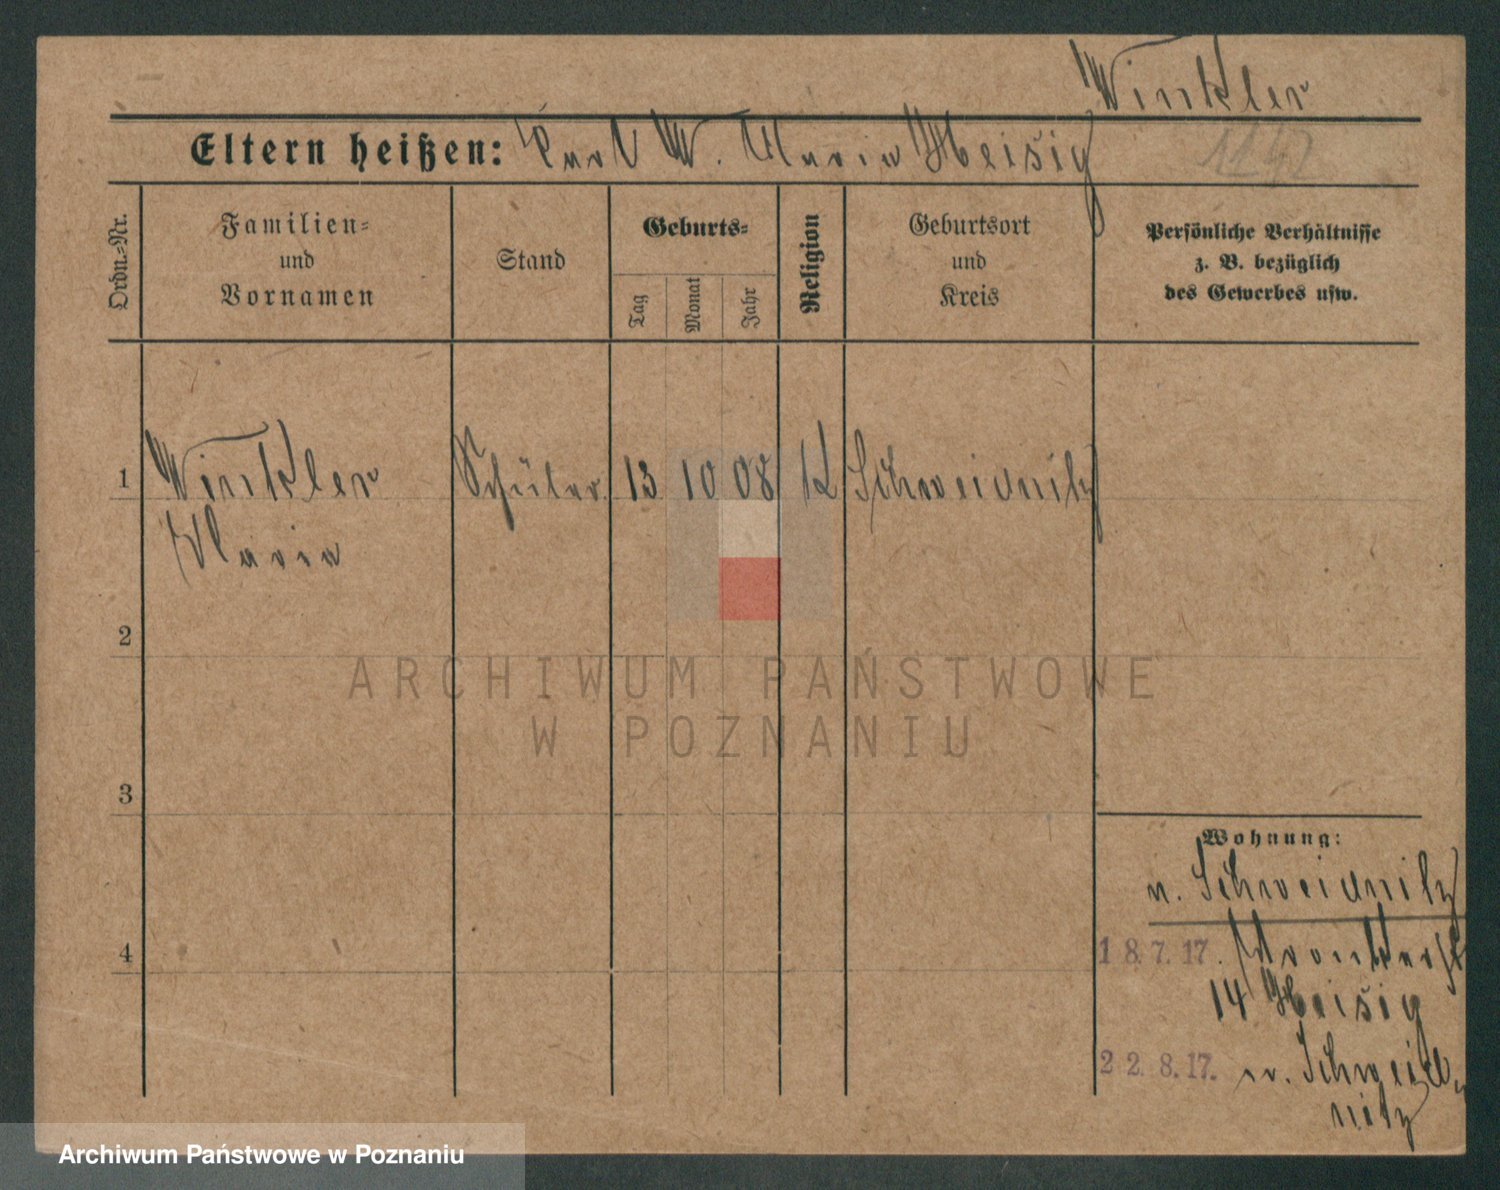 Winkler
Eltern heißen: Karl W. Maria Heisig
1242
Ordn.-Nr.
Familien-
und
Vornamen
Stand
Geburts-
Tag
Monat
Jahr
Religion
Geburtsort
und
Kreis
Persönliche Verhältnisse
z. B. bezüglich
des Gewerbes usw.
1 Winkler Schüler 13 10 08 K Schweidnitz
Maria
2
3
4
Wohnung:
v. Schweidnitz
18.7.17.
14 Heisig
22.8.17. n. Schweid-
nitz
ARCHIWUM PAŃSTWOWE
W POZNANIU
Archiwum Państwowe w Poznaniu